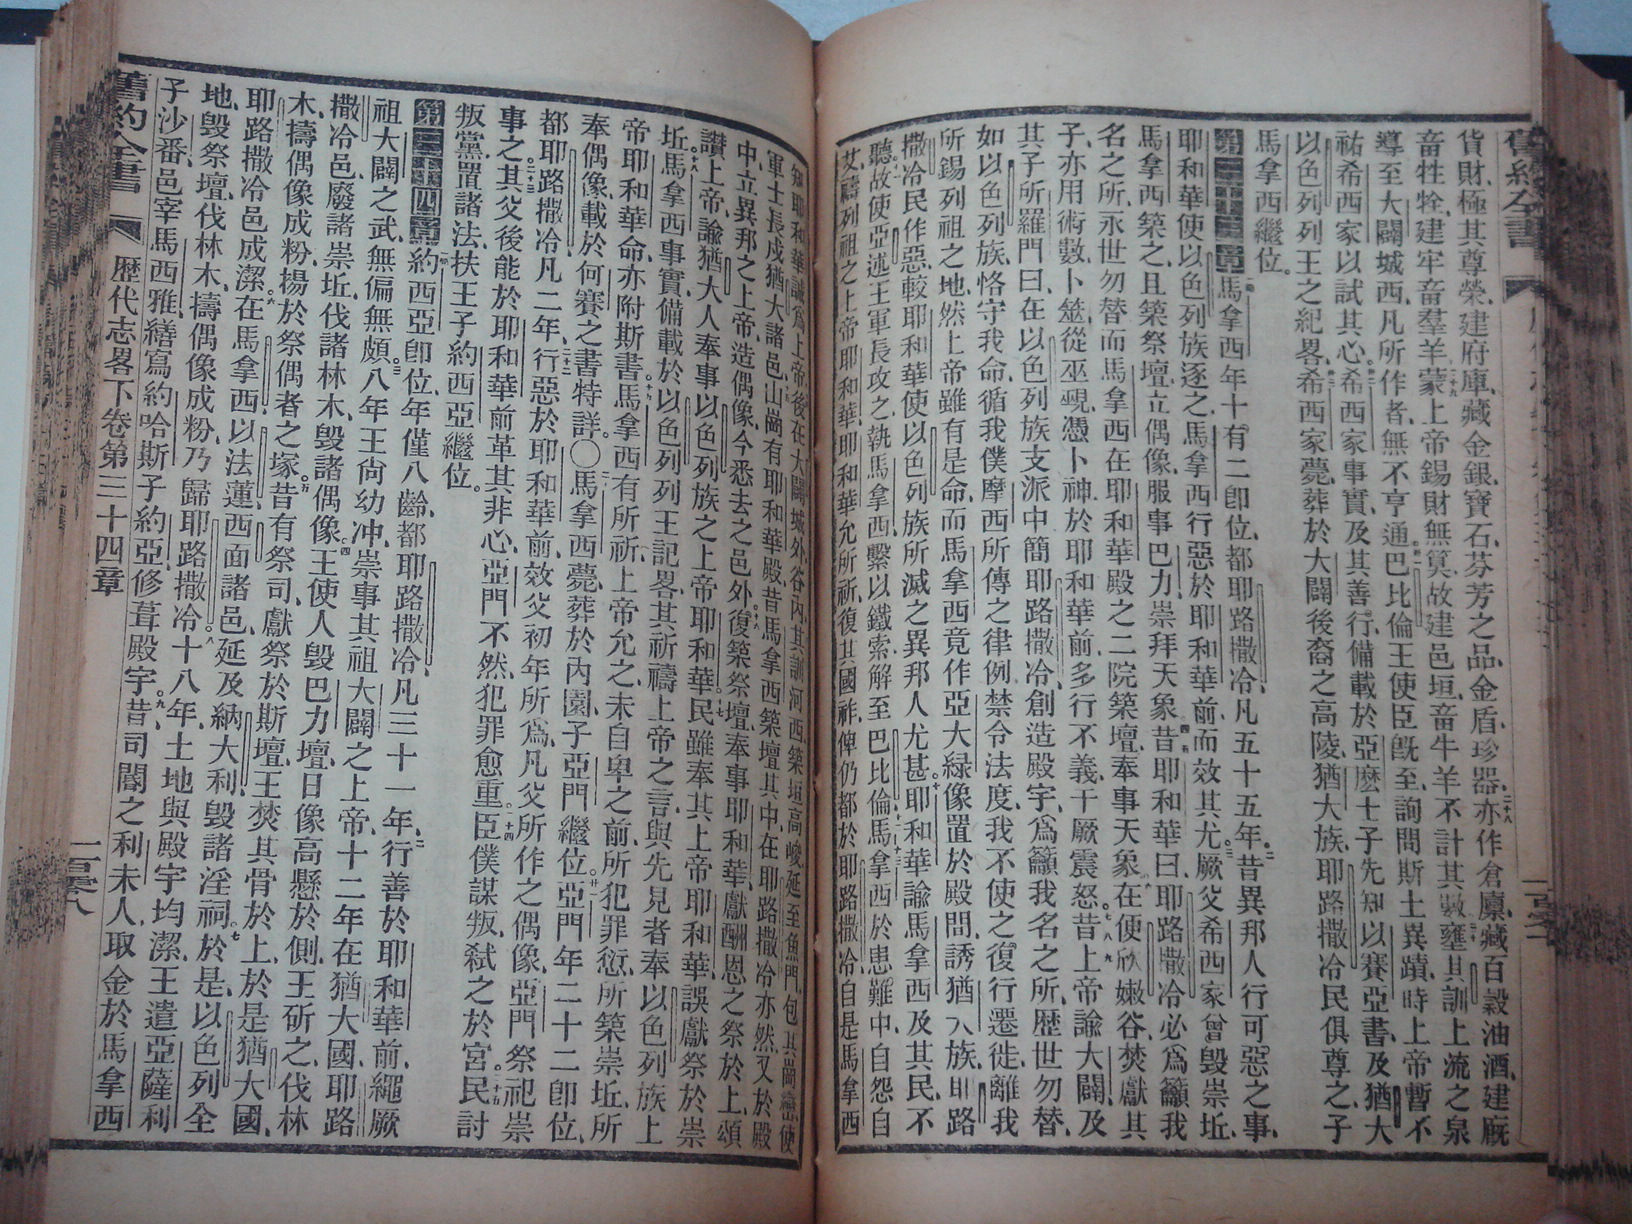 貨財、極其尊榮、建府庫、藏金銀、寶石、芬芳之品、金盾、珍器、亦作倉廩、藏百穀油酒、建厩
畜牲牷、建牢畜羣羊、蒙上帝錫財無算、故建邑垣、畜牛羊不計其數、壅其訓上流之泉
導至大闢城西、凡所作者、無不亨通。巴比倫王使臣旣至、詢問斯土異蹟、時上帝暫不
祐希西家、以試其心。希西家事實、及其善行、備載於亞麽士子先知以賽亞書、及猶大
以色列列王之紀畧。希西家薨、葬於大闢後裔之高陵、猶大族、耶路撒冷民俱尊之、子
馬拿西繼位。
第三十三章 馬拿西年十有二卽位、都耶路撒冷、凡五十五年。昔異邦人行可惡之事、
耶和華使以色列族逐之、馬拿西行惡於耶和華前而效其尤。厥父希西家曾毀崇坵、
馬拿西築之、且築祭壇、立偶像、服事巴力、崇拜天象。昔耶和華曰、耶路撒冷必爲籲我
名之所、永世勿替、而馬拿西在耶和華殿之二院築壇、奉事天象、在便欣嫩谷、焚獻其
子、亦用術數、卜筮、從巫覡、憑卜神、於耶和華前、多行不義、干厥震怒。昔上帝諭大闢、及
其子所羅門曰、在以色列族支派中、簡耶路撒冷、創造殿宇、爲籲我名之所、歷世勿替、
如以色列族恪守我命、循我僕摩西所傳之律例禁令法度、我不使之復行遷徙、離我
所錫列祖之地、然上帝雖有是命、而馬拿西竟作亞大綠像、置於殿間、誘猶大族、耶路
撒冷民作惡、較耶和華使以色列族所滅之異邦人尤甚。耶和華諭馬拿西及其民、不
聽、故使亞述王軍長攻之、執馬拿西、繫以鐵索、解至巴比倫、馬拿西於患難中、自怨自
艾、禱列祖之上帝耶和華、耶和華允所祈、復其國祚、俾仍都於耶路撒冷、自是馬拿西
知耶和華誠爲上帝。後在大闢城外谷內、其訓河西、築垣高峻、延至魚門、包其崗巒、使
軍士長戍猶大諸邑、山崗有耶和華殿、昔馬拿西築壇其中、在耶路撒冷亦然、又於殿
中、立異邦之上帝、造偶像、今悉去之邑外、復築祭壇、奉事耶和華、獻酬恩之祭於上、頌
讚上帝、諭猶大人奉事以色列族之上帝耶和華。民雖奉其上帝耶和華、誤獻祭於崇
坵。馬拿西事實、備載於以色列列王記畧、其祈禱上帝之言、與先見者奉以色列族上
帝耶和華命、亦附斯書、馬拿西有所祈、上帝允之、未自卑之前、所犯罪愆、所築崇坵、所
奉偶像、載於何賽之書特詳。○馬拿西薨、葬於內園、子亞門繼位。亞門年二十二卽位、
都耶路撒冷、凡二年、行惡於耶和華前、效父初年所爲、凡父所作之偶像、亞門祭祀崇
事之、其父後能於耶和華前革其非心、亞門不然、犯罪愈重。臣僕謀叛、弒之於宮、民討
叛黨、置諸法、扶王子約西亞繼位。
第三十四章 約西亞卽位、年僅八齡、都耶路撒冷、凡三十一年、行善於耶和華前、繩厥
祖大闢之武、無偏無頗。八年、王尙幼冲、崇事其祖大闢之上帝、十二年、在猶大國、耶路
撒冷邑、廢諸崇坵、伐諸林木、毀諸偶像。王使人毀巴力壇、日像高懸於側、王斫之、伐林
木、擣偶像成粉、揚於祭偶者之塚。昔有祭司、獻祭於斯壇、王焚其骨於上、於是猶大國、
耶路撒冷邑成潔。在馬拿西以法蓮西面諸邑、延及納大利、毀諸淫祠、於是以色列全
地、毀祭壇、伐林木、擣偶像成粉、乃歸耶路撒冷。十八年、土地與殿宇均潔、王遣亞薩利
子沙番、邑宰馬西雅、繕寫約哈斯子約亞、修葺殿宇。昔司閽之利未人、取金於馬拿西
舊約全書
歷代志畧下卷第三十四章
一百零八
舊約全書